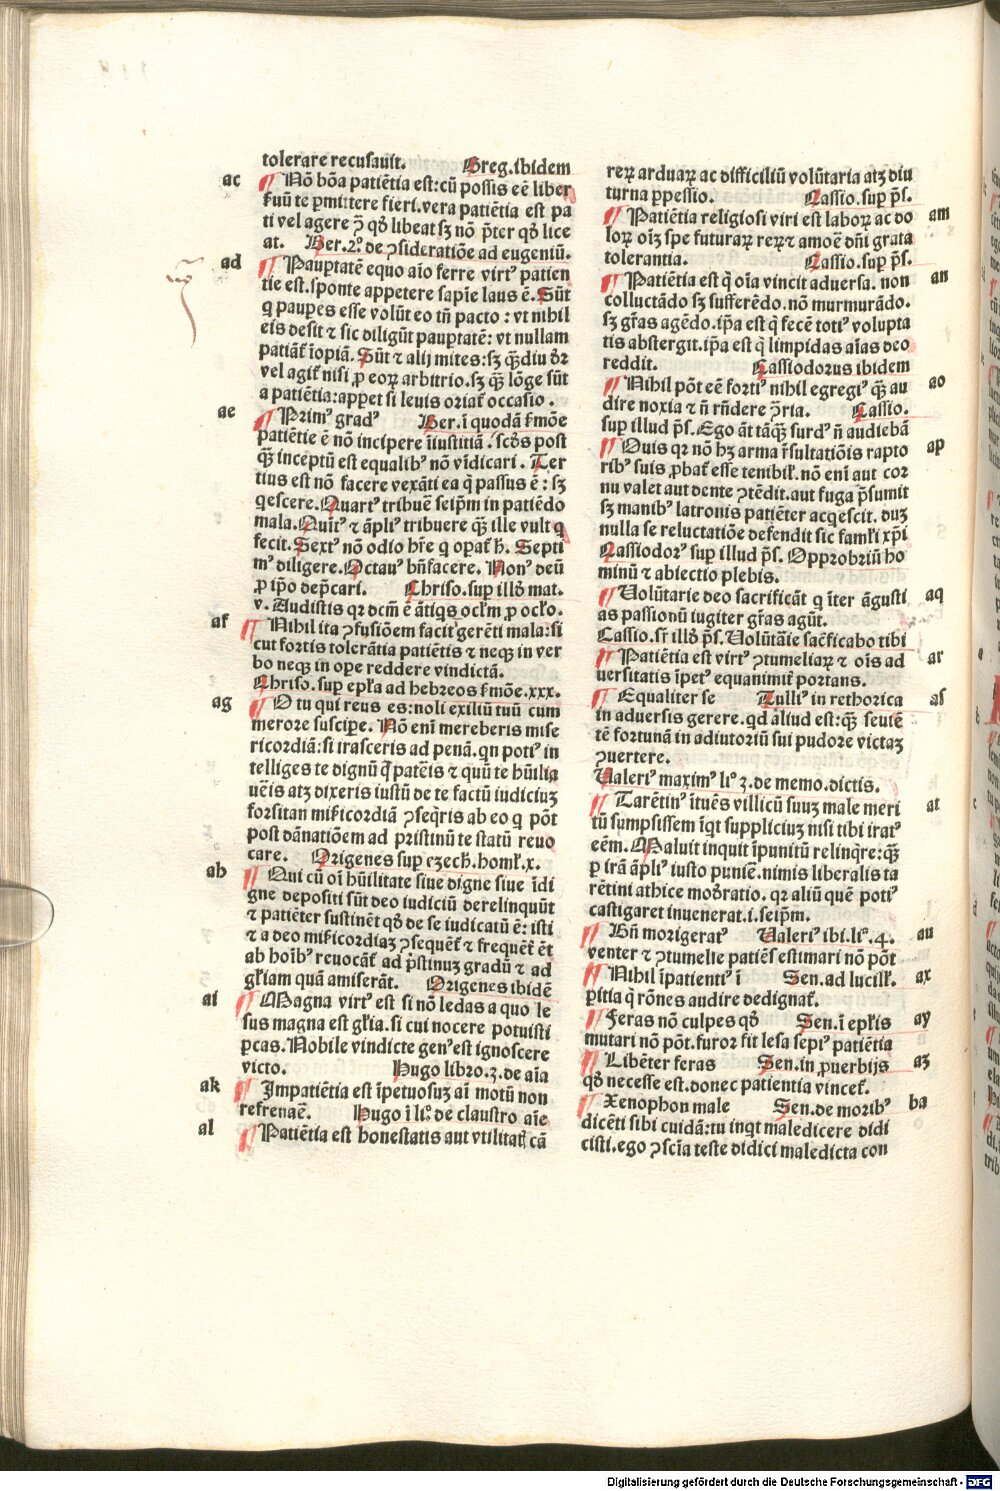 tolerare recusauit. Greg.ibidem
ac
¶ Nō bōa patiētia est:cū possis eē liber
suū te p̱mittere fieri.vera patiētia est pa
ti vel agere ꝙ qđ libeat sꝫ nō p̄ter qđ lice
at. Ber.2º.de ꝯsideratiōe ad eugeniū.
ad
¶ Paup̱tatē equo aīo ferre virtꝰ patien
tie est.sponte appetere sapīe laus ē.Sūt
q̄ paup̱es esse volūt eo tn̄ pacto : vt nihil
eis desit ⁊ sic diligūt paup̱tatē: vt nullam
patiāt̄ īopiā.Sūt ⁊ alij mites:sꝫ q̄ꝫdiu đr
vel agit̄ nisi ꝓ eoꝝ arbitrio.sꝫ q̄ꝫ lōge sūt
a patiētia:appet si leuis oriat̄ occasio.
ae
¶ Primꝰ gradꝰ Ber.ī quodā s̄mōe
patiētie ē nō incipere īiustitiā. scđs post
q̄ꝫ inceptū est equalibꝰ nō vīdicari. Ter
tius est nō facere vexāti ea q̄ passus ē : sꝫ
q̇escere.Quartꝰ tribuē seip̄m in patiēdo
mala.Quītꝰ ⁊ āpliꝰ tribuere q̄ꝫ ille vult q̇
fecit.Sextꝰ nō odio hr̄e q̇ oꝑat̄ h̄. Septi
mꝰ diligere.Octauꝰ bn̄facere. Nonꝰ deū
ꝓ ip̄o dep̄cari. Chriso.sup̱ illđ mat.
v. Audistis qꝛ dcm̄ ē ātiq̇s ocl̄m ꝓ ocl̄o.
af
¶ Nihil ita ꝯfusiōem facit gerēti mala:si
cut fortis tolerātia patiētis ⁊ neqꝫ in ver
bo neqꝫ in ope reddere vindictā.
Chriso.sup̱ epl̄a ad hebreos s̄mōe.xxx.
ag
¶ O tu qui reus es:noli exiliū tuū cum
merore suscip̱e. Nō enī mereberis mise
ricordiā:si irasceris ad penā.qn potiꝰ in
telliges te dignū q̄ patēis ⁊ quū te hūilia
uēis atqꝫ dixeris iustū de te factū iudiciuꝫ
forsitan mīcordiā ꝯseq̄ris ab eo q̇ pōt
post dānatiōem ad pristinū te statū reuo
care. Origenes sup̱ ezech̄.homl̄.x.
ah
¶ Qui cū oī hūilitate siue digne siue īdi
gne depositi sūt deo iudiciū derelinquūt
⁊ patiēter sustinēt qđ de se iudicatū ē: isti
⁊ a deo mīcordiaꝫ ꝯsequēt̄ ⁊ frequēt̄ ēt
ab hoībꝰ reuocāt̄ ad p̄stinuꝫ gradū ⁊ ad
gl̄iam quā amiserāt. Origenes ibidē
ai
¶ Magna virtꝰ est si nō ledas a quo le
sus magna est gl̄ia.si cui nocere potuisti
p̱cas.Nobile vindicte genꝰ est ignoscere
victo. Hugo libro.3.de aīa
ak
¶ Impatiētia est īpetuosuꝫ aī motū non
refrenaē. Hugo ī liº.de claustro aīe
al
¶ Patiētia est honestatis aut vtilitatꝭ cā
reꝝ arduaꝝ ac difficiliū volūtaria atqꝫ diu
turna p̱pessio. Cassio.sup̱ p̄s.
am
¶ Patiētia religiosi viri est laboꝝ ac do
loꝝ oīꝫ spe futuraꝝ reꝝ ⁊ amoē dn̄i grata
tolerantia. Cassio.sup̱ p̄s.
an
¶ Patiētia est q̄ oīa vincit aduersa. non
colluctādo sꝫ sufferēdo.nō murmurādo.
sꝫ gr̄as agēdo.ip̄a est q̄ fecē totiꝰ volupta
tis abstergit.ip̄a est q̄ limpidas aīas deo
reddit. Cassiodorus ibidem
ao
¶ Nihil pōt eē fortiꝰ nihil egregiꝰ q̄ꝫ au
dire noxia ⁊ n̄ rn̄dere ꝯria. Cassio.
sup̱ illud p̄s.Ego āt tāq̄ꝫ surdꝰ n̄ audiebā
ap
¶ Ouis qꝛ nō hꝫ arma īsultatiōis rapto
ribꝰ suis ꝓbat̄ esse tenibil̄.nō enī aut cor
nu valet aut dente ꝯtēdit.aut fuga p̄sumit
sꝫ manibꝰ latronis patiēter acq̇escit. duꝫ
nulla se reluctatiōe defendit sic faml̄i xp̄i
Cassiodorꝰ sup̱ illud p̄s. Opprobriū ho
minū ⁊ abiectio plebis.
aq
¶ Volūtarie deo sacrificāt q̇ īter āgusti
as passionū iugiter gr̄as agūt.
Cassio.sr̄ illđ p̄s.Volūtāīe sac̄ficabo tibi
ar
¶ Patiētia est virtꝰ ꝯtumeliaꝝ ⁊ oīs ad
uersitatis īpetꝰ equanimit̄ portans.
as
¶ Equaliter se Tulliꝰ in rethorica
in aduersis gerere.qd aliud est:q̄ꝫ seuiē
tē fortunā in adiutoriū sui pudore victaꝫ
ꝯuertere.
Valeriꝰ maximꝰ liº 3.de memo.dictis.
at
¶ Tarētinꝰ ītuēs villicū suuꝫ male meri
tū sump̱sissem īqt suppliciuꝫ nisi tibi iratꝰ
eēm. Maluit inquit īpunitū relinq̄re:q̄ꝫ
p̱ irā āpliꝰ iusto puniē.nimis liberalis ta
rētini athice mođratio. qꝛ aliū quē potiꝰ
castigaret inuenerat.i.seip̄m.
au
¶ Bn̄ morigeratꝰ Valeriꝰ ibi.liº.4.
venter ⁊ ꝯtumelie patiēs estimari nō pōt
ax
¶ Nihil īpatientiꝰ ī Sen.ad lucill̄.
pitia q̄ rōnes audire dedignat̄.
ay
¶ Feras nō culpes qđ Sen.ī epl̄is
mutari nō pōt.furor fit lesa sepiꝰ patiētia
az
¶ Libēter feras Sen.in ꝓuerbijs
qđ necesse est.donec patientia vincet̄.
ba
¶ Xenophon male Sen.de moribꝰ
dicēti sibi cuidā:tu inqt maledicere didi
cisti.ego ꝯscīa teste didici maledicta con
Digitalisierung gefördert durch die Deutsche Forschungsgemeinschaft - DFG